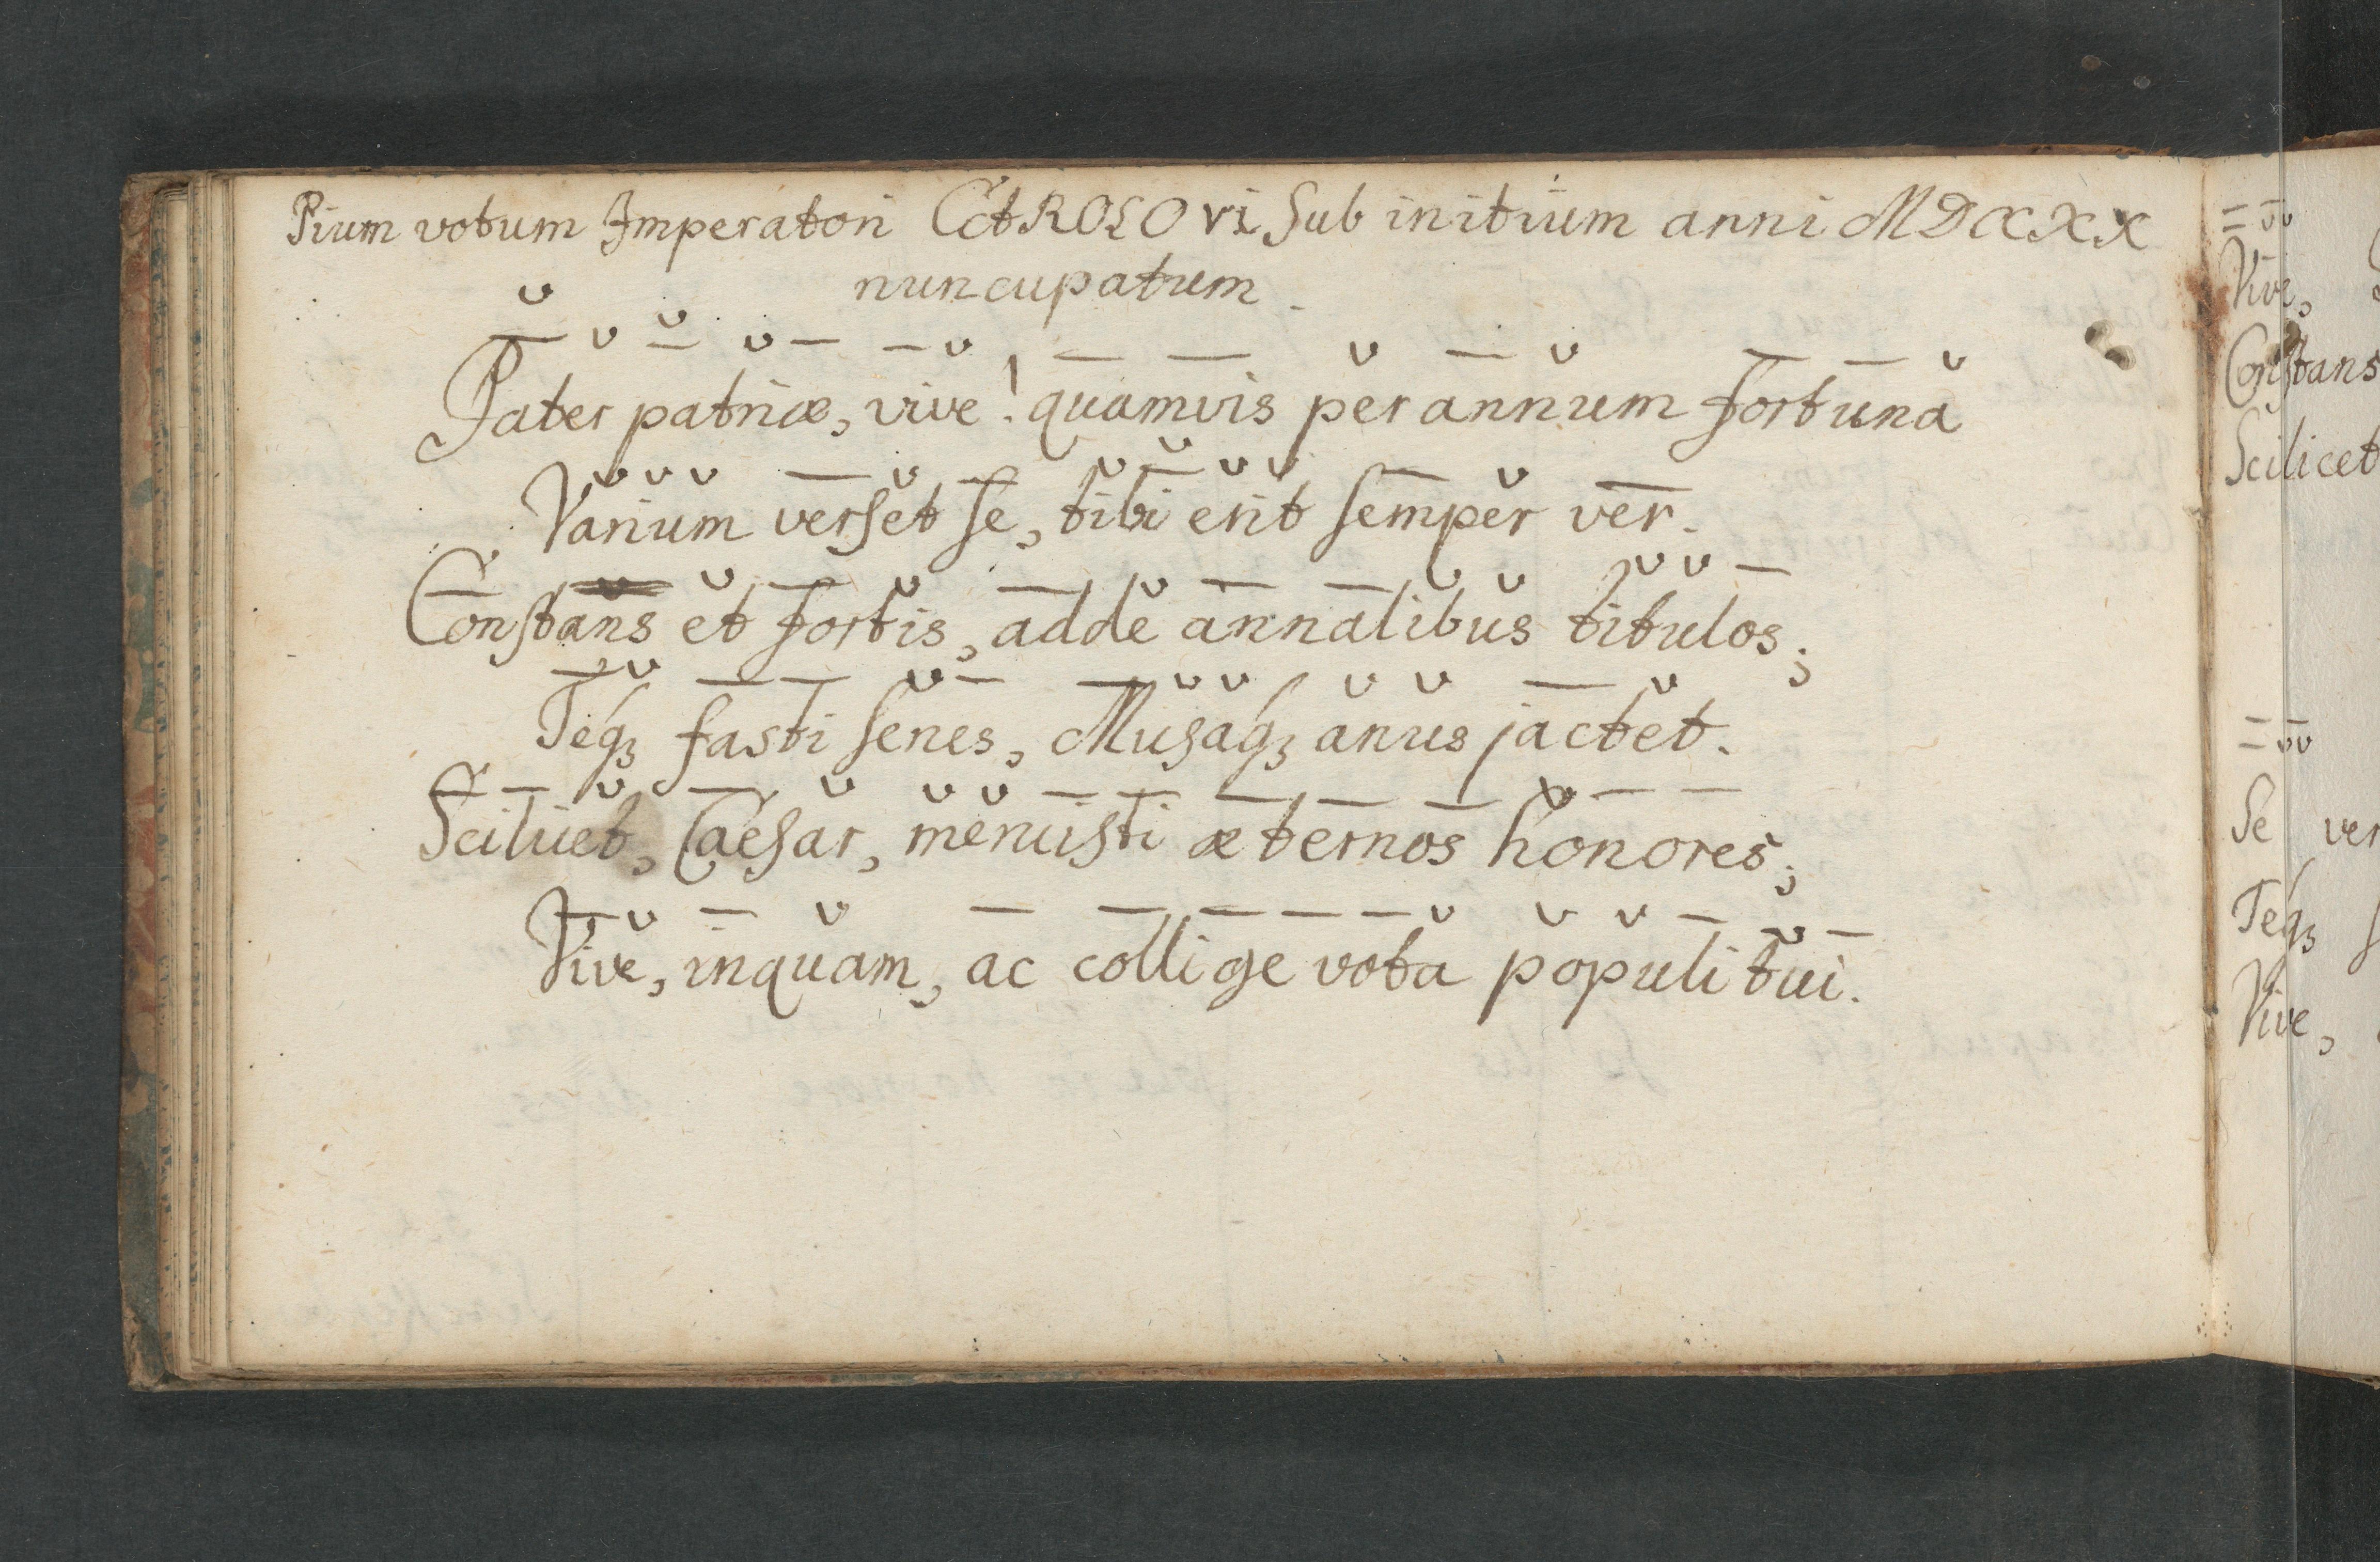 Pium votum Imperatori CAROLO VI sub initium anni MDCCXXX
nuncupatum.
Pater patriæ, vive! quamvis per annum fortuna
Varium verset se, tibi erit semper ver.
Constans et fortis, adde annalibus titulos;
Teqꝫ fasti senes, Musaqꝫ anus jactet.
Scilicet, Caesar, meruisti æternos honores;
Vive, inquam, ac collige vota populi tui.
Vive,
Constans
Scilicet
Se ver
Teqꝫ
Vive,